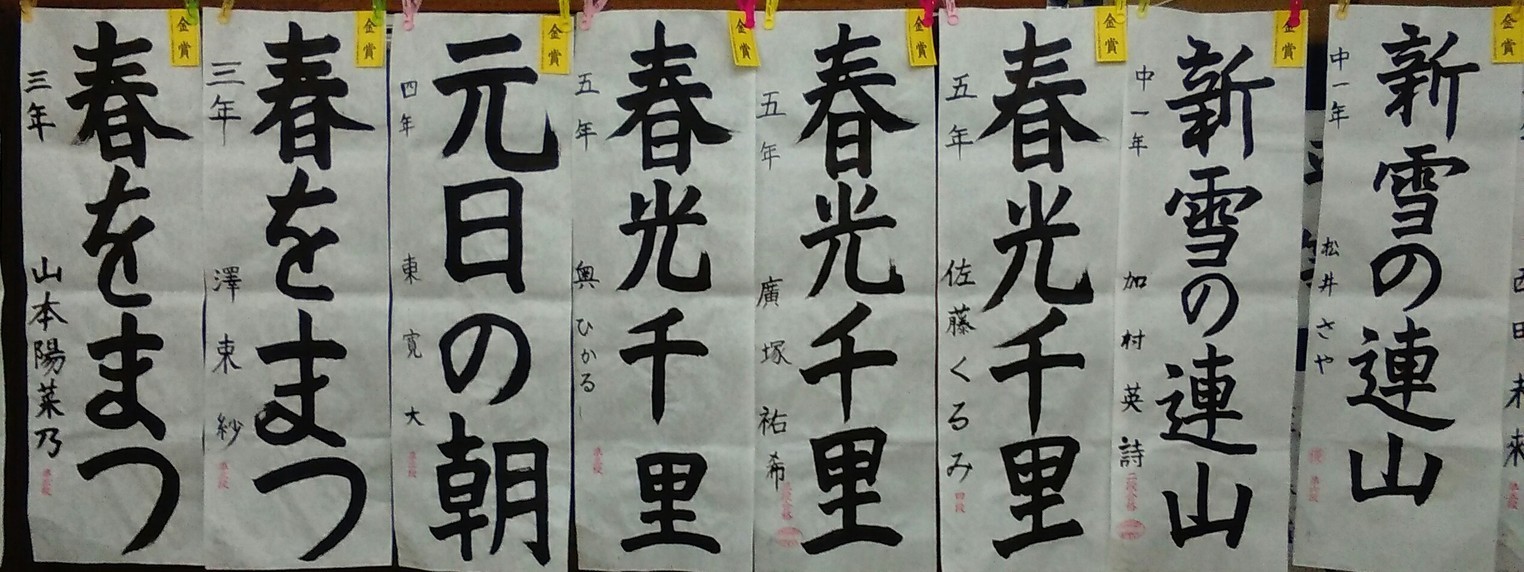 金賞
新雪の連山
中一年
松井さや
金賞
新雪の連山
中一年
加村英詩
金賞
春光千里
五年
佐藤くるみ
四段
金賞
春光千里
五年
廣塚祐希
金賞
春光千里
五年
奥ひかる
金賞
元日の朝
四年
東寛大
金賞
春をまつ
三年
澤東紗
金賞
春をまつ
三年
山本陽菜乃